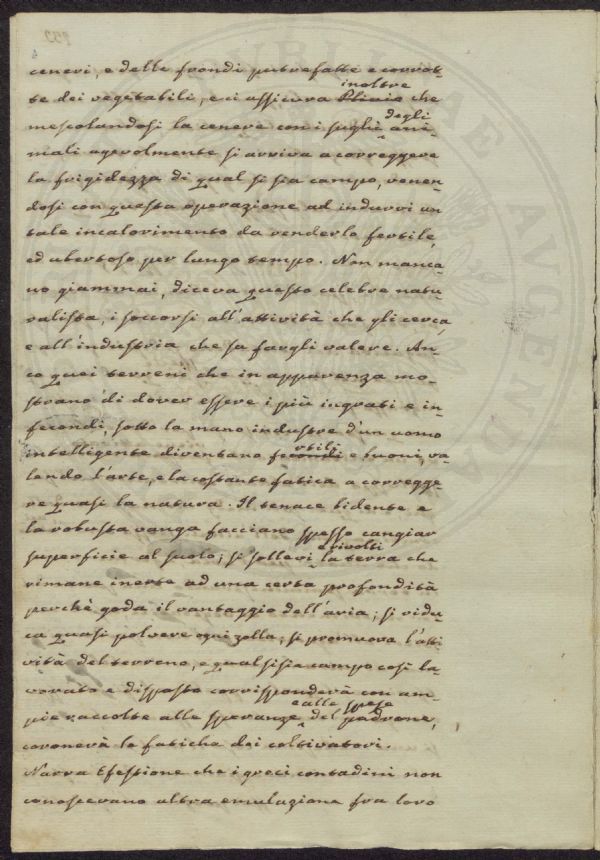 ceneri, e delle frondi putrefatte e corrot-
te dei vegetabili, e ci assicura inoltre Plinio che
mescolandosi la cenere con i sughi degli ani-
mali agevolmente si arriva a correggere
la frigidezza di qual si sia campo, venen-
dosi con questa operazione ad indurvi un
tale incalorimento da renderlo fertile,
ed ubertoso per lungo tempo. Non manca-
no giammai, diceva questo celebre natu-
ralista, i soccorsi all'attività che gli cerca
e all'industria che sa fargli valere. An-
co quei terreni che in apparenza mo-
strano di dover essere i più ingrati e in-
fecondi, sotto la mano industre d'un uomo
intelligente diventano fertili e buoni, va-
lendo l'arte, e la costante fatica a corregge-
re quasi la natura. Il tenace bidente e
la robusta vanga facciano spesso cangiar
superficie al suolo; si sollevi e rivolti la terra che
rimane inerte ad una certa profondità
perchè goda il vantaggio dell'aria; si ridu-
ca quasi polvere ogni zolla; si promuova l'atti-
vità del terreno, e qual sisia campo così la-
vorato e disposto corrisponderà con am-
pie raccolte alle speranze e alle spese del padrone,
coronerà le fatiche dei coltivatori.
Narra Efestione che i greci contadini non
conoscevano altra emulazione fra loro